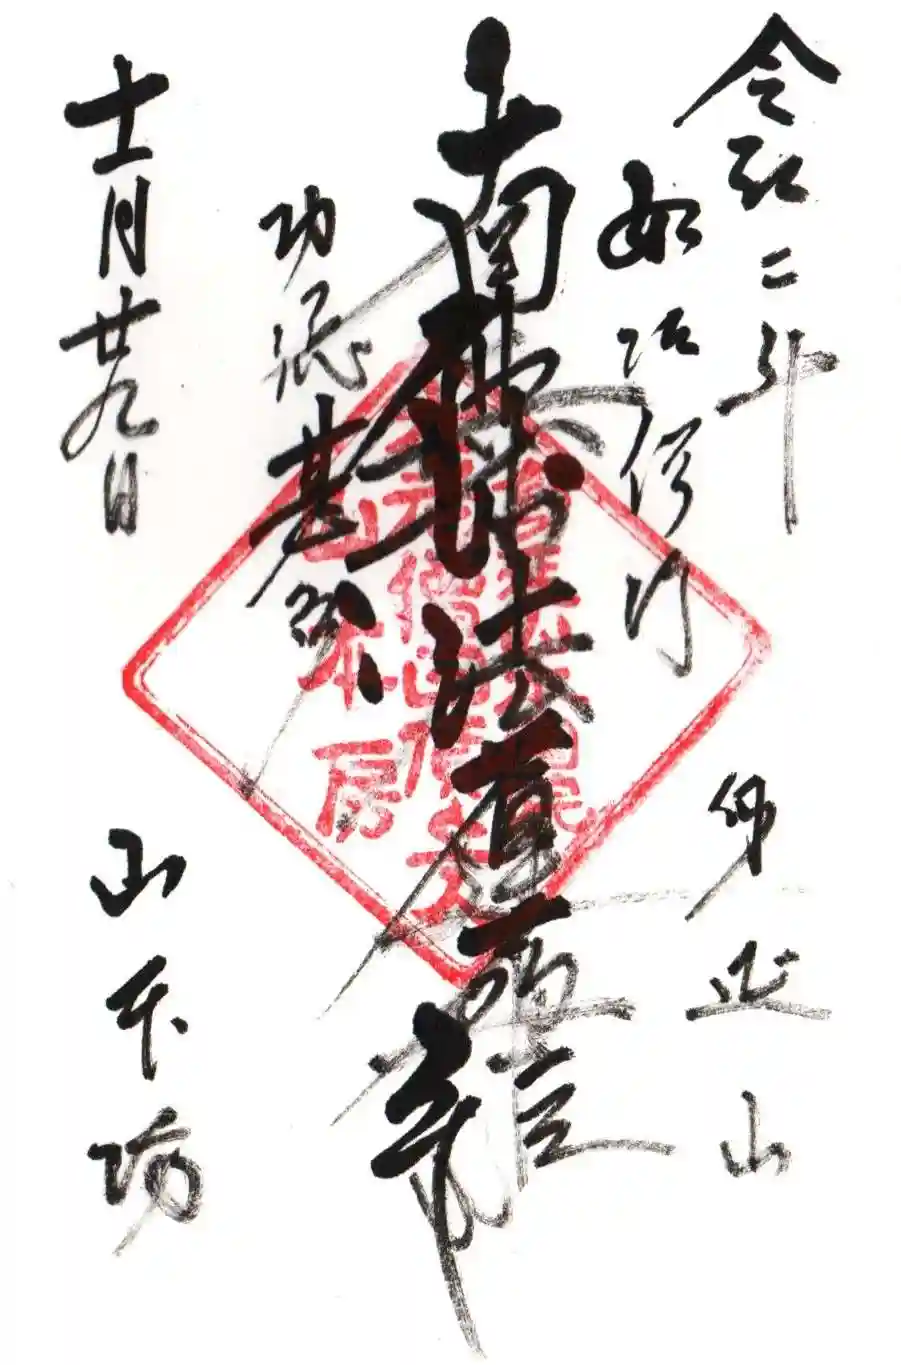 令和二年
如説修行
身延山
南無妙法蓮華経
功徳甚多
十一月廿九日
山本坊
山本房